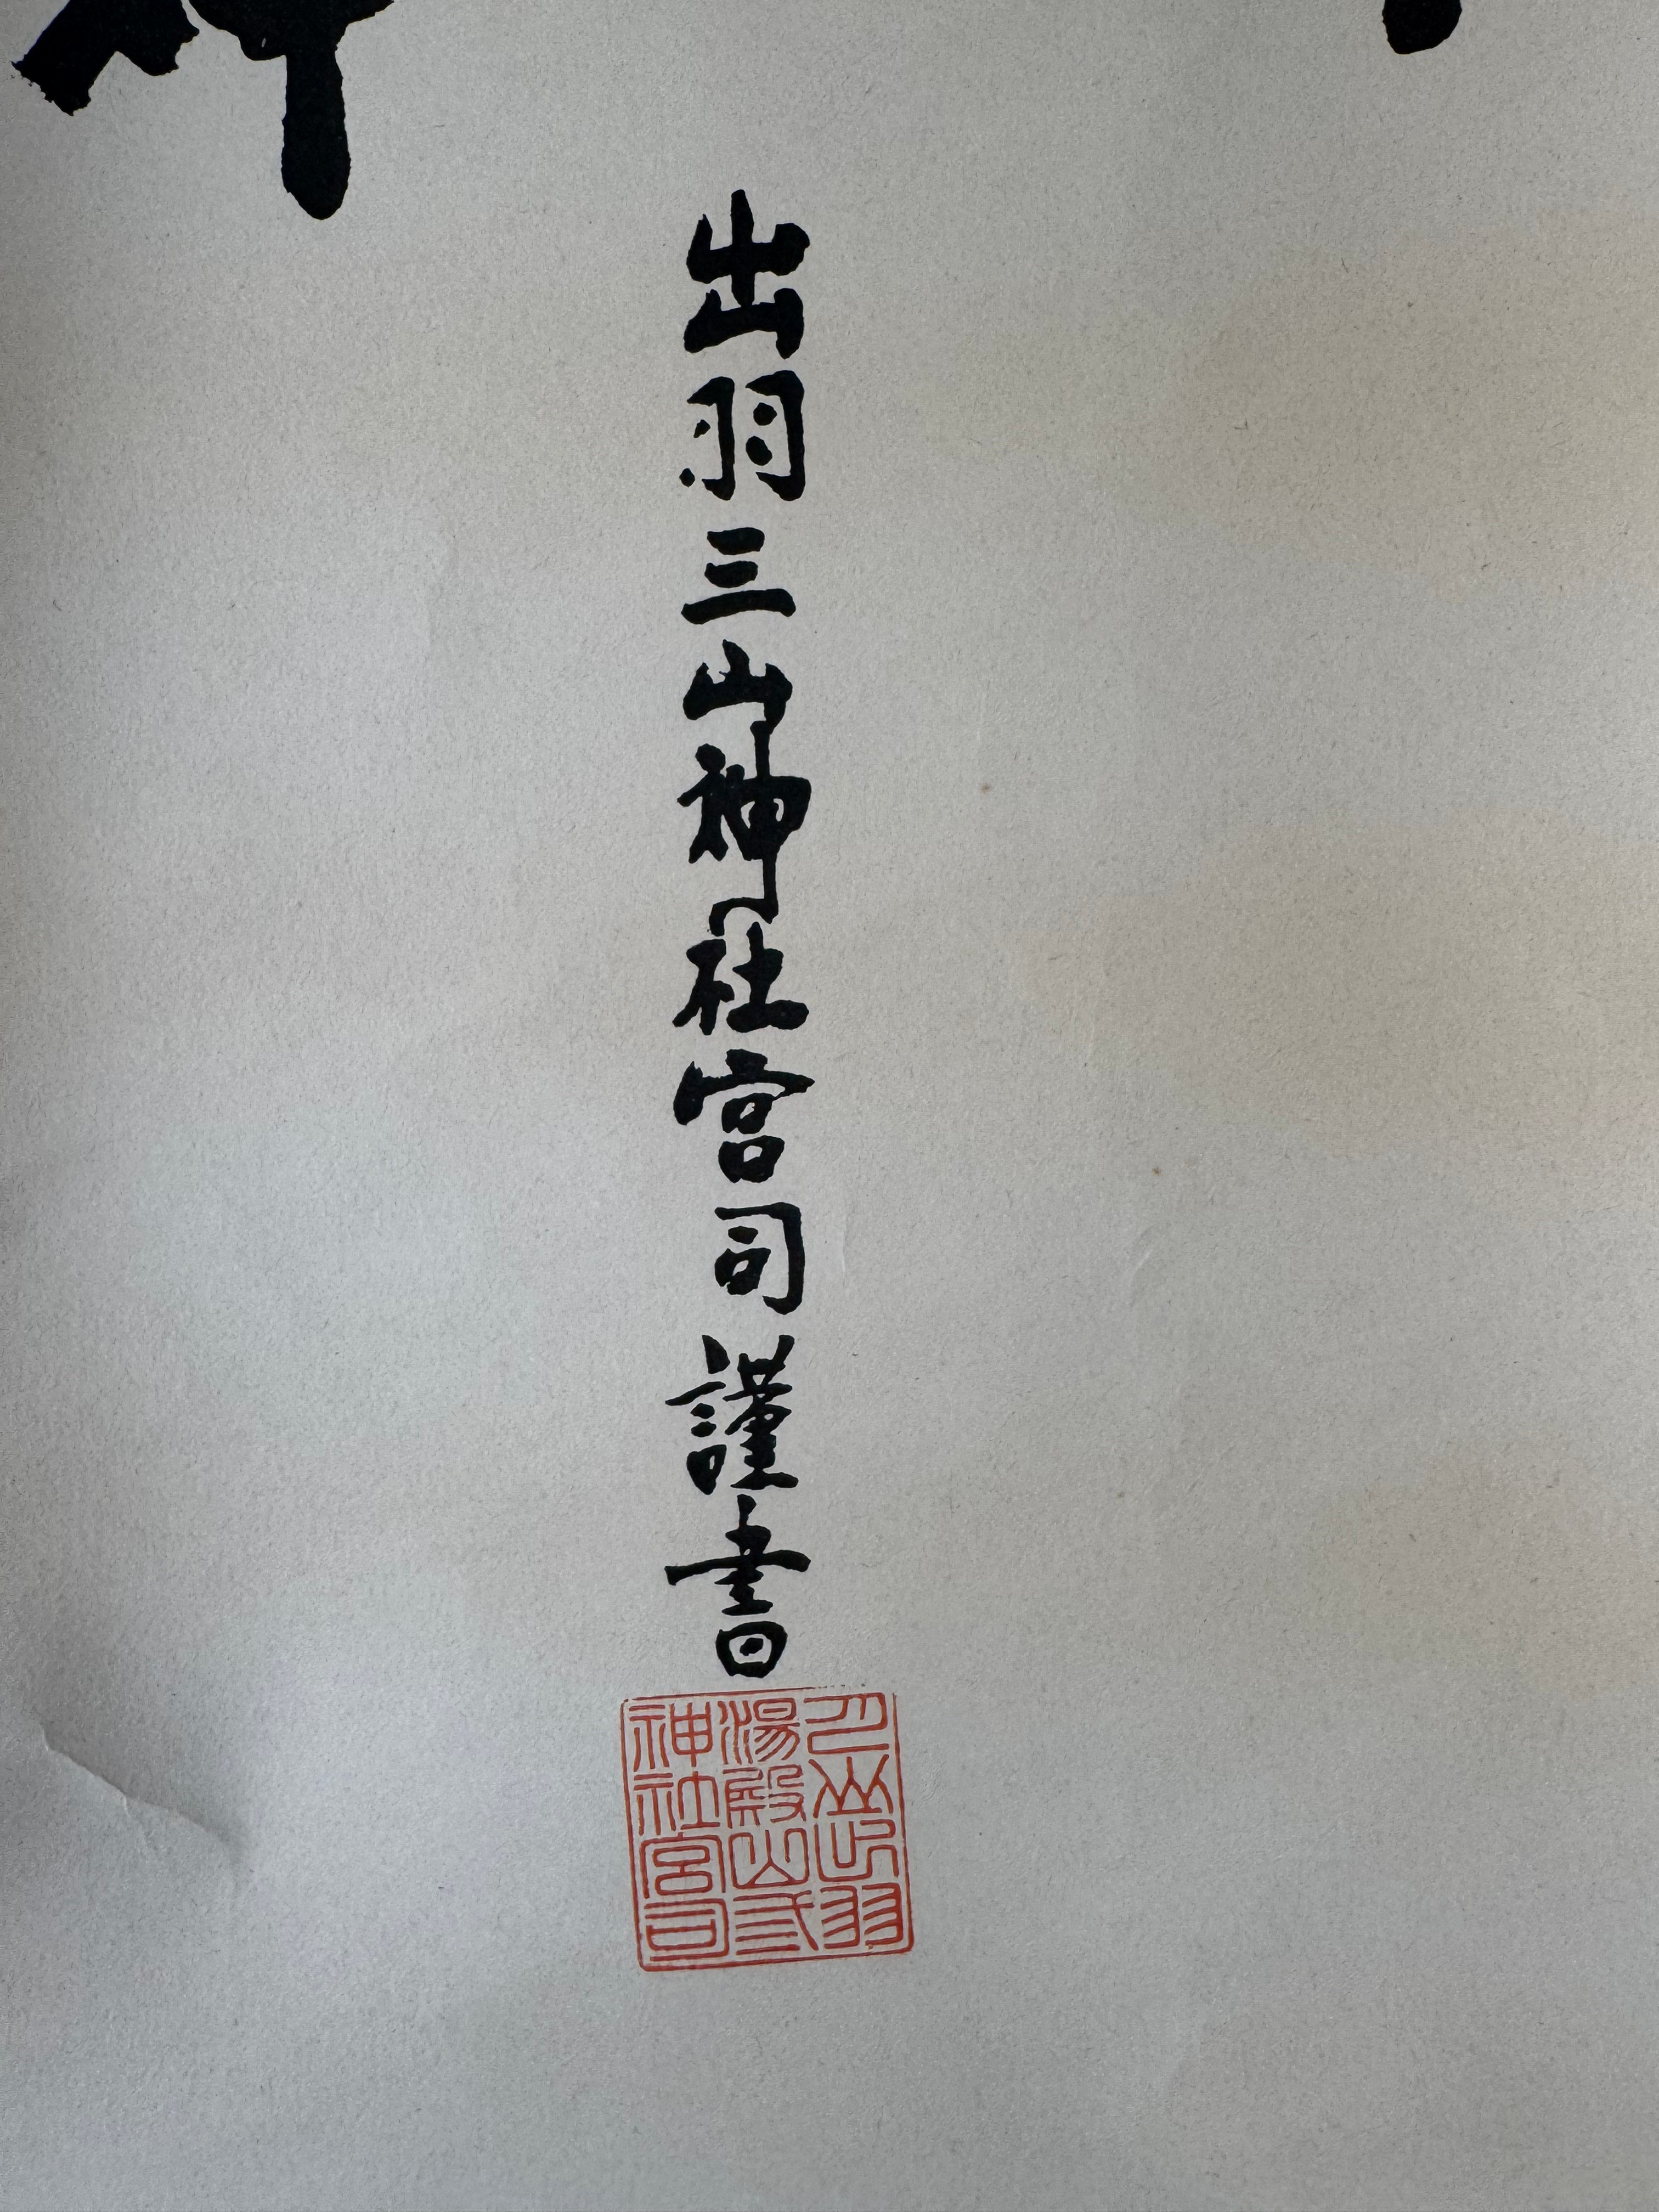 出羽三山神社宮司謹書
月山出羽
湯殿山弎
神社宮司